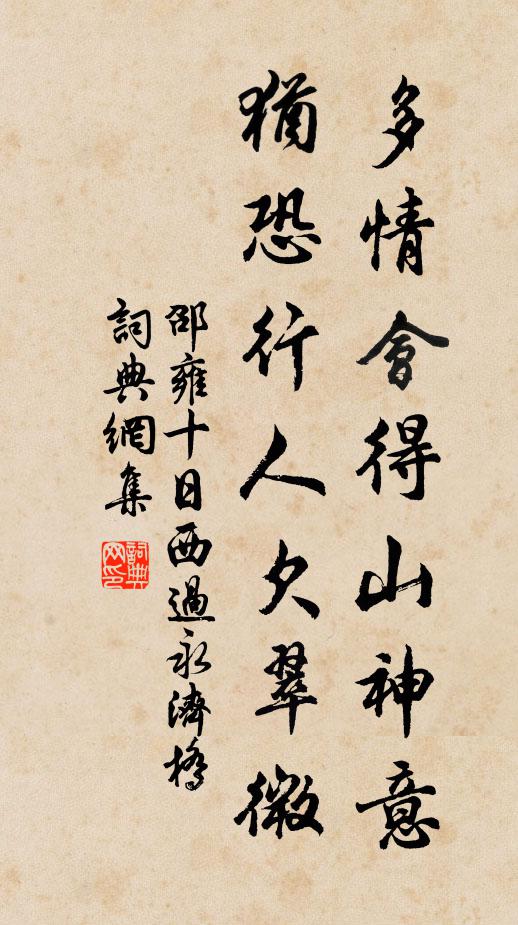 多情會得山神意
猶恐行人欠翠微
邵雍十日西過永濟橋
詞典網集
詞典
网印